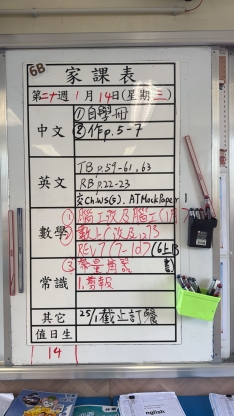 6B
家課表
第二十週 1月14日(星期三)
中文
①自學冊
②作p.5-7
英文
TB p.59-61, 63
RB p.22-23
交Ch WS(5). AT Mock Paper 1
數學
① 腦工改及腦工(1月)
② 數上(改及)p.73
REV7 (7-1d7) (6上B
③ 常量
書)
常識
1.剪報
其它
25/1截止訂
值日生
14